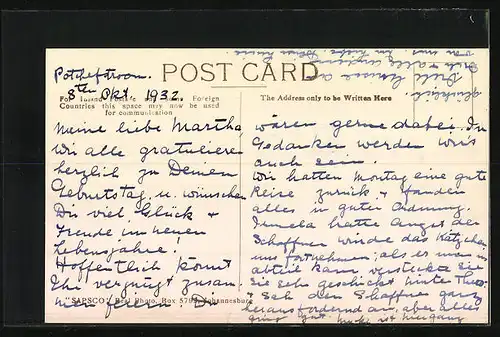 Potchefstroom.
8ten Okt. 1932.
POST CARD
For Inland Postage only this Foreign
Countries this space may now be used
for communication
The Address only to be Written Here
Meine liebe Martha
wir alle gratulieren
herzlich zu Deinem
Geburtstag, u. wünschen
Dir viel Glück +
Freude im neuen
Lebensjahre!
Hoffentlich könnt
Ihr vergnügt zusam
men feiern. Wir
"SAPSCO" Real Photo, Box 5792, Johannesburg
wären gerne dabei. In
Gedanken werden wir's
auch sein.
Wir hatten Montag eine gute
Reise zurück + fanden
alles in guter Ordnung.
hatte Angst der
Schaffner würde das Kätzchen
uns fortnehmen; als er man ins
abteil kam, versteckte sie
sie sehr geschickt hinter Theo:
sah den Schaffner ganz
herausfordernd an, aber alles
ging gut
glücklich.
Viele Grüsse
Dich + alle